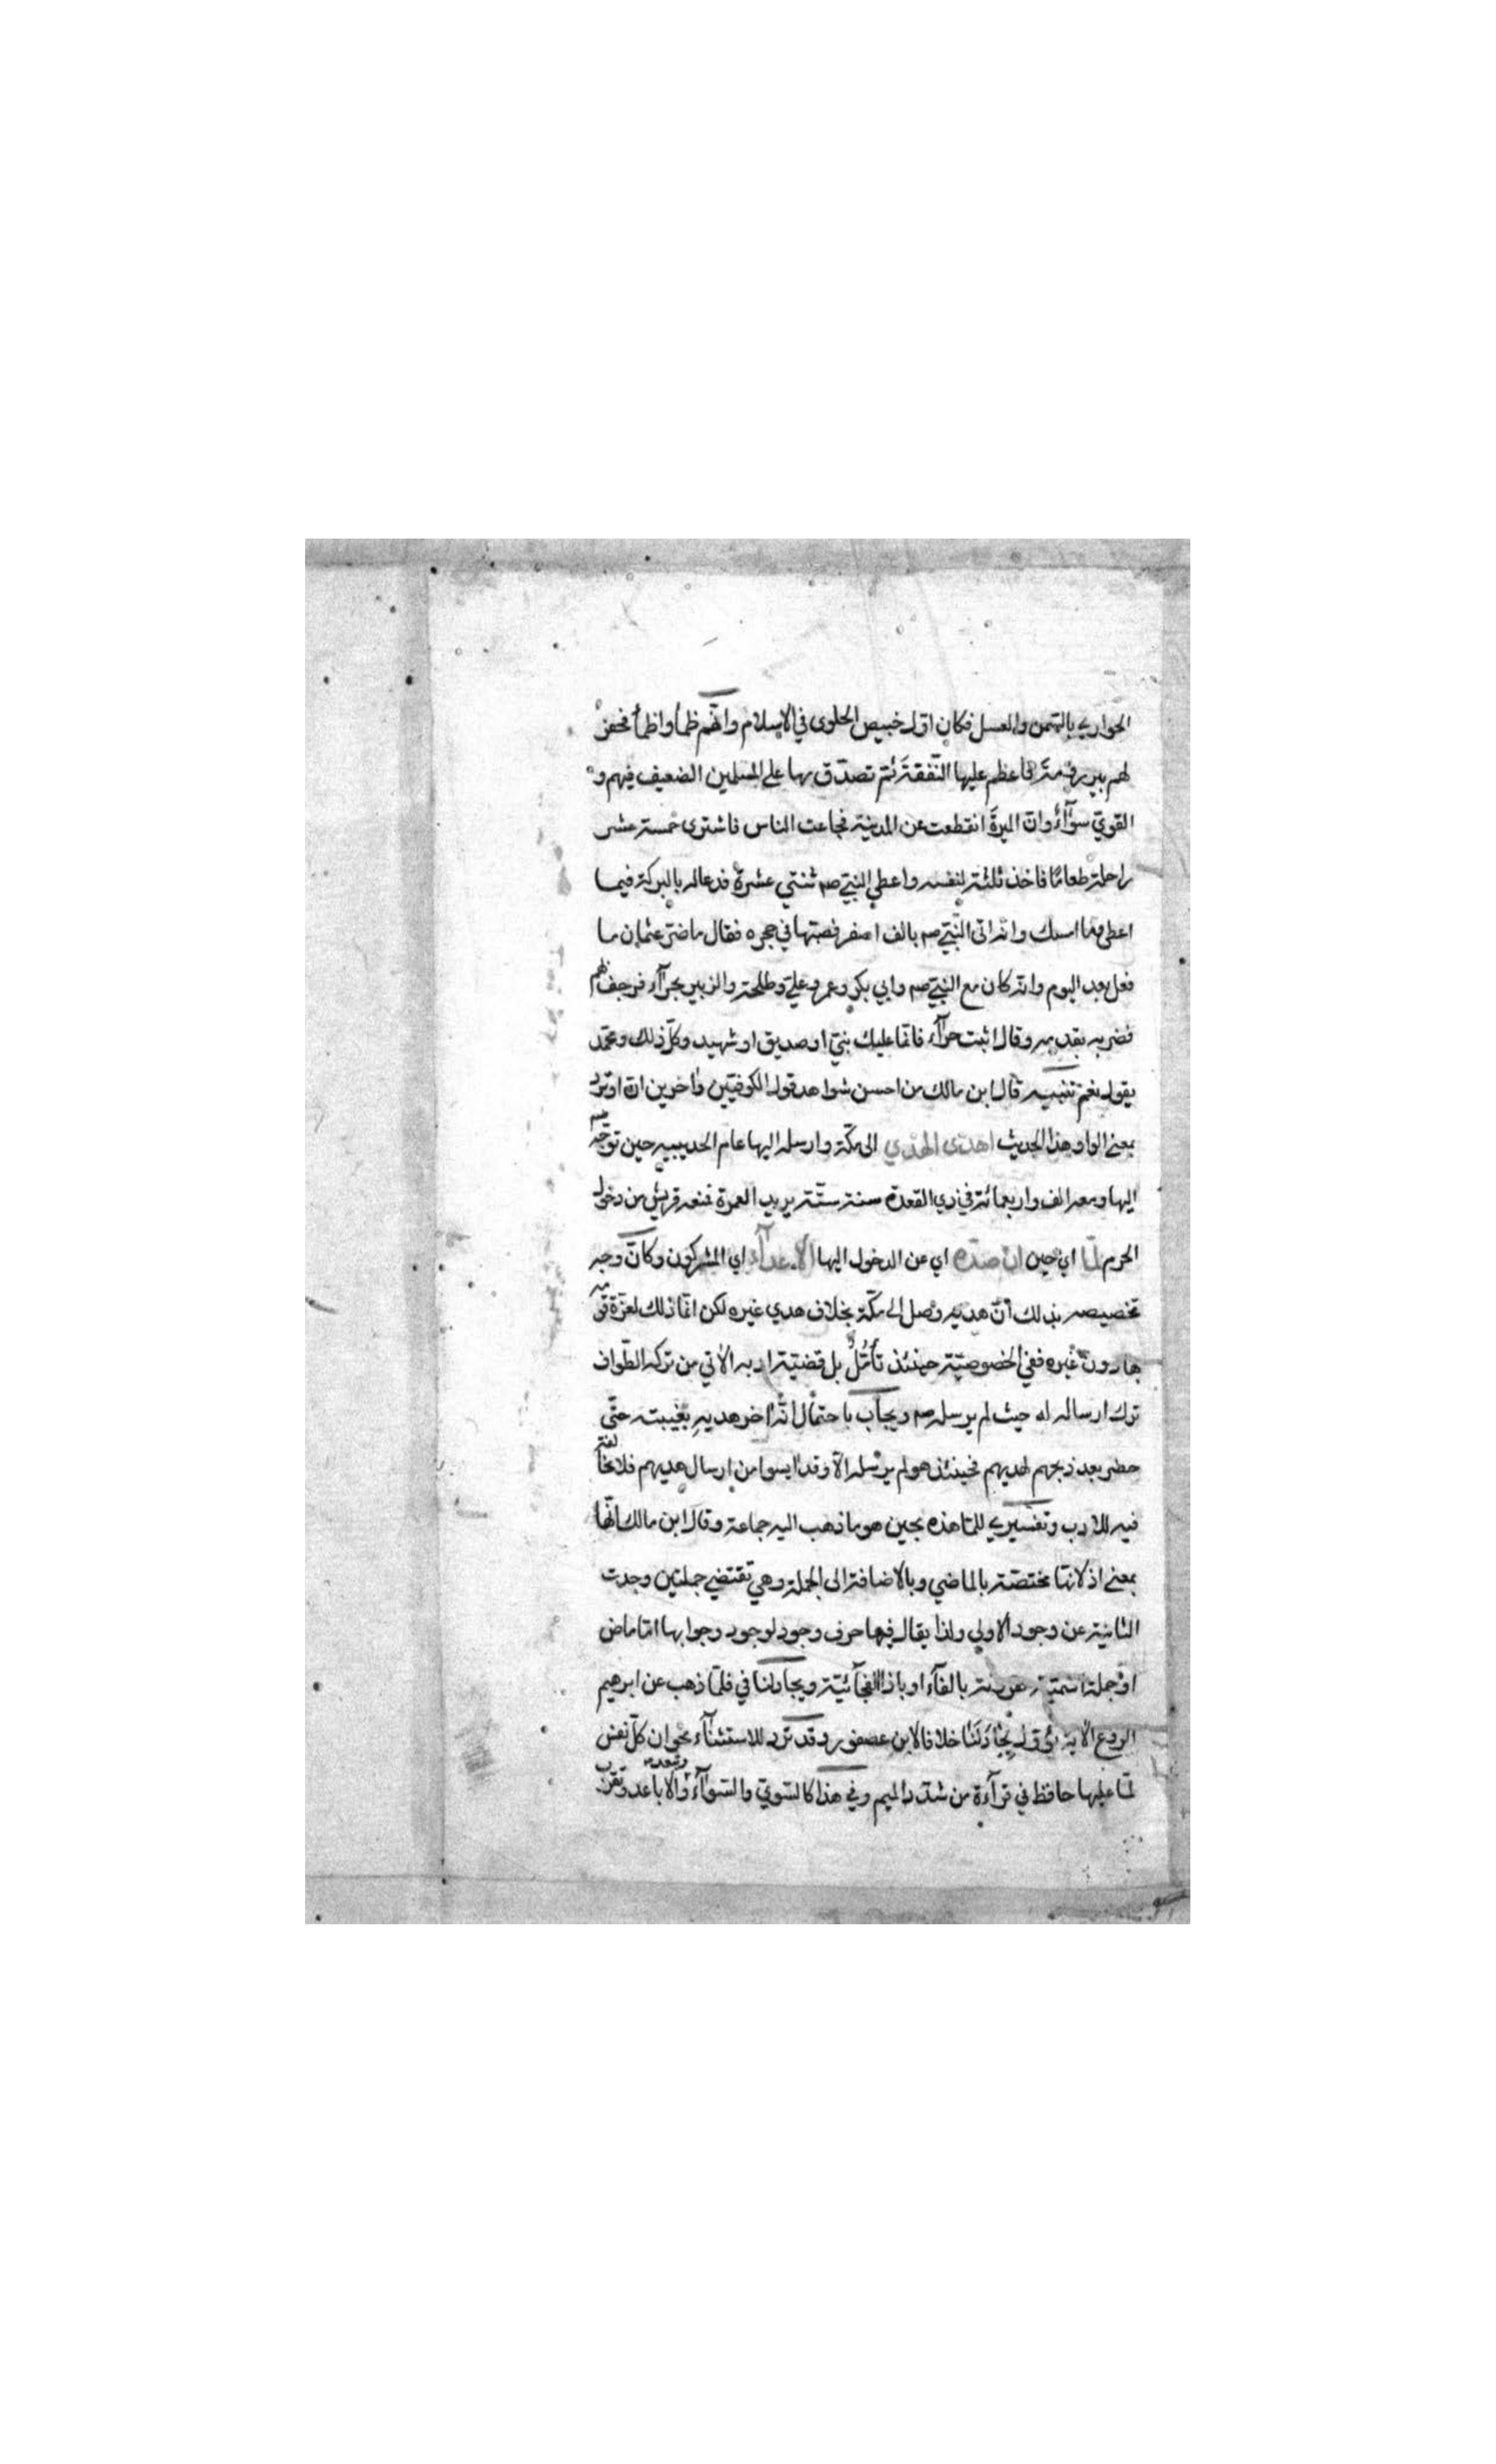 الحواري بالسمن والعسل فكان اول خبيص الحلوى في الاسلام وانهم ظمأوا ظمأ فحفر
لهم بير رومة فاعظم عليها النفقة ثم تصدق بها على المسلمين الضعيف فيهم و
القوي سوآء وان الميرة انقطعت عن المدينة فجاعت الناس فاشترى خمسة عشر
راحلة طعامًا فاخذ ثلثة لنفسه واعطى النبي صم ثنتي عشرة فدعا له بالبركة فيما
اعطى وما امسك وانه اتى النبي صم بالف اصفر فصبتها في حجره فقال ما ضر عثمان ما
فعل بعد اليوم وانه كان مع النبي صم وابي بكر وعمر وعلي وطلحة والزبير بحرآء فرجف بهم
فضربه بقدمه وقال اثبت حرآء فانما عليك نبي او صديق او شهيد وكل ذلك ومحمد
يقول نعم تنبيه قال ابن مالك من احسن شواهد قول الكوفيين واخرين ان او ترد
بمعنى الواو هذا الحديث اهدى الهدي الى مكة وارسله اليها عام الحديبية حين توجه صم
اليها ومعه الف واربعمائة في ذي القعدة سنة ستة يريد العمرة فمنعه قريش من دخول
الحرم لما اي حين ان صده اي عن الدخول اليها الاعدآء اي المشركون وكان وجه
تخصيصه بذلك ان هديه وصل الى مكة بخلاف هدي غيره لكن انما ذلك لعزة قومه
بها دون غيره ففي الخصوصية حينئذ تأمل بل قضية ادبه الاتي من تركه الطواف
ترك ارساله له حيث لم يرسله صم ويجاب باحتمال انه اخر هديه بغيبته حتى
حضر بعد ذبحهم لهديهم فحينئذ هو لم يرسله الا وقد ايسوا من ارسال هديهم فلا مخالفة
فيه للادب وتفسيري للما هذه بحين هو ما ذهب اليه جماعة وقال ابن مالك انها
بمعنى اذ لانها مختصة بالماضي وبالاضافة الى الجملة وهي تقتضي جملتين وجدت
الثانية عن وجود الاولى ولذا يقال فيها حرف وجود لوجود وجوابها اما ماض
او جملة اسمية مقرونة بالفآء او باذا الفجآئية ويجادلنا في فلما ذهب عن ابرهيم
الروع الاية يؤول بجادلنا خلافا لابن عصفور وقد ترد للاستثنآء نحو ان كل نفس
لما عليها حافظ في قرآءة من شدد الميم وفي هذا كالسوي والسوآء والاباعد وتقرب